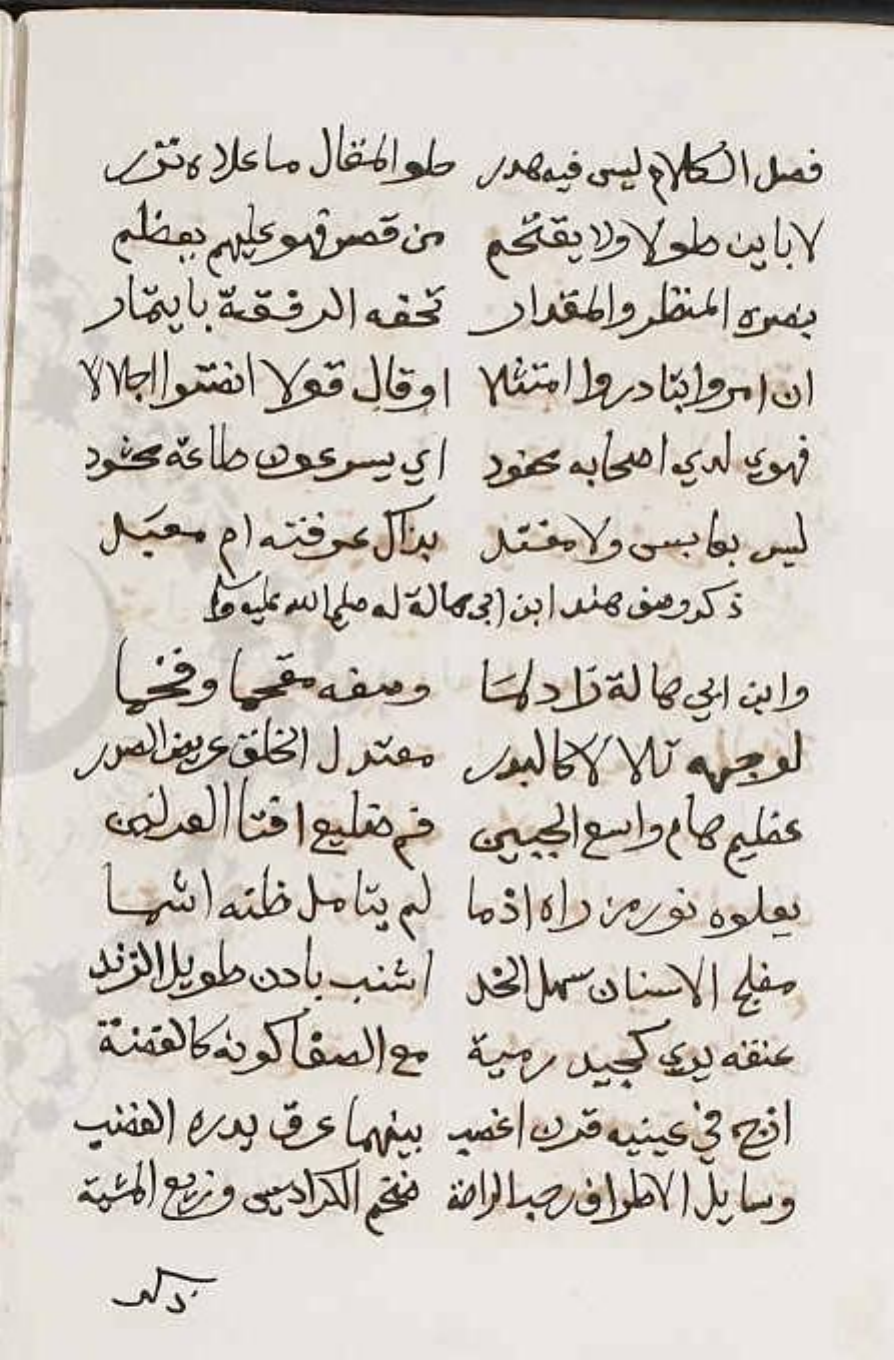 فصل الكلام ليس فيه هدر حلو المقال ما علاه نزر
لا باين طولا ولا يقتحم من قصر فهو عليهم يعظم
نضره المنظر والمقدار تحفه الرفقة بايتمار
ان امروا بتادروا امتثالا او قال قولا انصتوا اجلالا
فهوي لدي اصحابه محفود اي يسرعون طاعة محشود
ليس بعابس ولا مفند بذاك عرفته ام معبد
ذكر وصف هند ابن ابي هالة له صلى الله عليه وسلم
وابن ابي هالة زاد لما وصفه مفخما وفخما
لوجهه تلالا كالبدر معتدل الخلق عريض الصدر
عظيم هام واسع الجبين فم ضليع اقنا العرنين
يعلوه نور من راه اذ ما لم يتامل ظنه اشما
مفلج الاسنان سهل الخد اشنب بادن طويل الزند
عنقه يري كجيد رمية مع الصفا كونه كالفضة
ازج في عينيه قرن اغضب بينهما عرق يدره الغضب
وسايل الاطراف رحب الراحة ضخم الكراديس وزريع المشية
ذكر